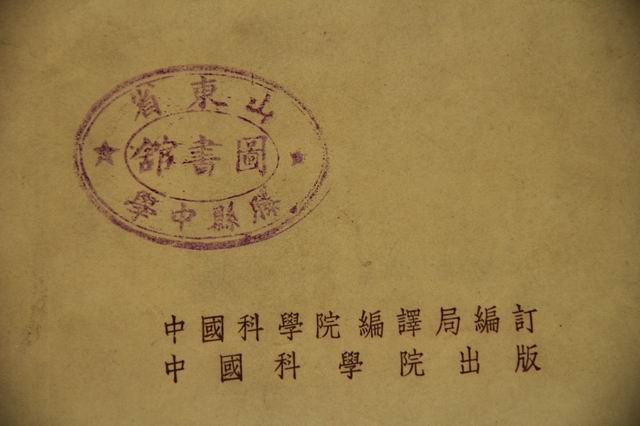 山東省
圖書館
縣中學
中國科學院編譯局編訂
中國科學院出版